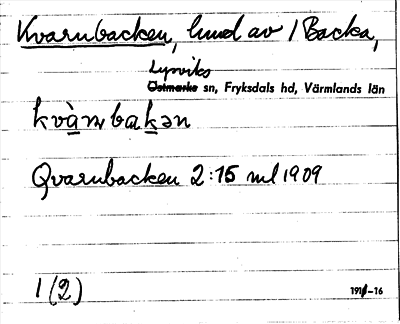 Kvarnbacken, hmd av 1 Backa,
Lysviks
Östmarks sn, Fryksdals hd, Värmlands län
kvàɳbakən
Qvarnbacken 2:15 ml 1909
1 (2)
1911-16